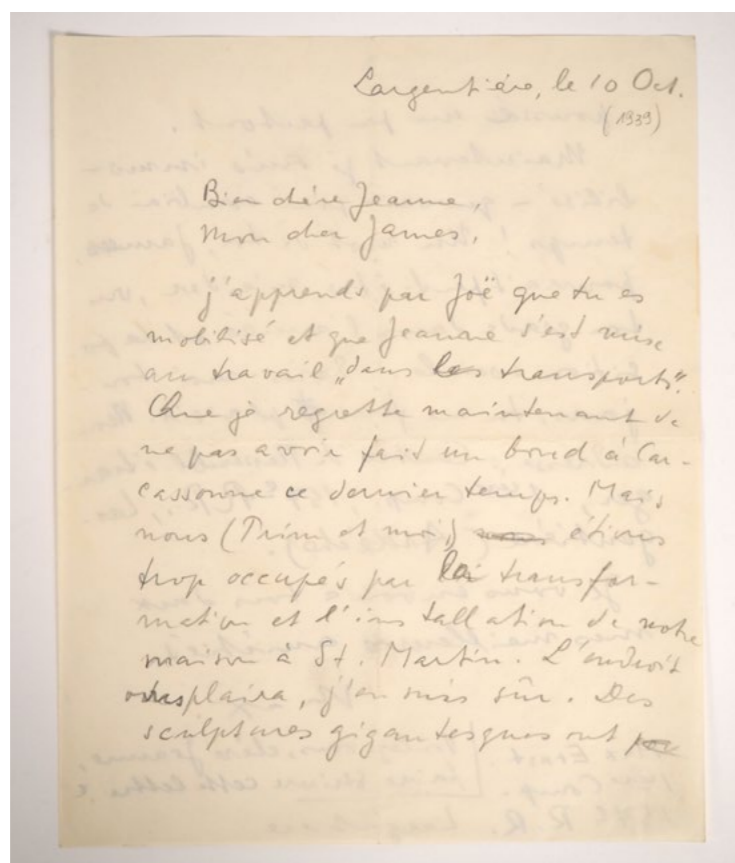 Largentière, le 10 Oct.
(1939)
Bien chère Jeanne,
Mon cher James,
j'apprends par Joë que tu es
mobilisé et que Jeanne s'est mise
au travail „dans les transports".
Que je regrette maintenant de
ne pas avoir fait un bond à Car-
cassonne ce dernier temps. Mais
nous (Trim et moi) étions
trop occupés par la transfor-
mation et l'installation de notre
maison à St. Martin. L'endroit
vous plaira, j'en suis sûr. Des
sculptures gigantesques ont